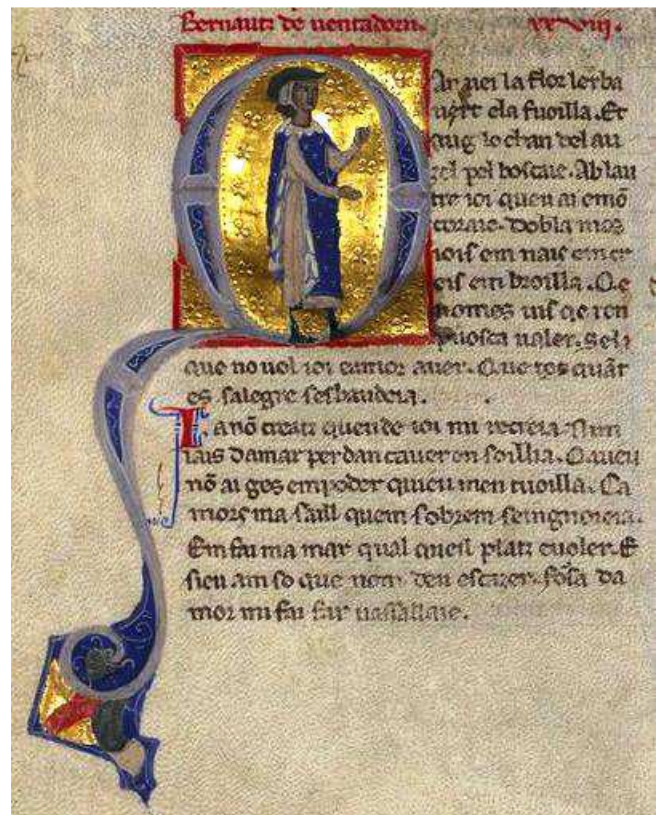 Bernautz de uentadorn.
Qan uei la flor lerba
uert ela fuoilla. Et
aug lo chan del au
zel pel boscaie. Ab lau
tre ioi queu ai emõ
coraie. Dobla mos
iois em nais em cr
eis em broilla. Qe
nomes uis qe ren
puosca ualer. Sel
que no uol ioi camor auer. Que tos quãt
es salegre sesbaudeia.
Ia nõ creatz quende ioi mi recreia. Nim
lais damar per dan cauer en soillia. Q
nõ ai ges em poder quieu men tuoilla. Ca
mors ma saill quem sobrem seingnoreia.
Em fai ma mar qual queil platz euoler. E
sieu am so que nom deu escazer. fosa da
mor mi fai far uassallaie.